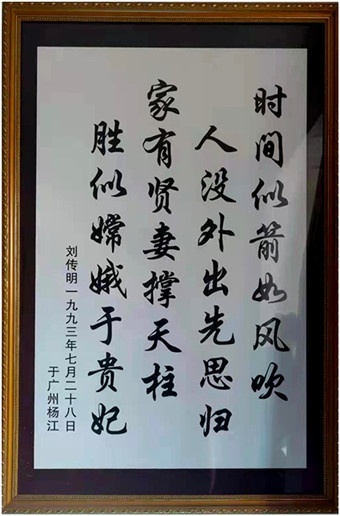 时间似箭如风吹
人没外出先思归
家有贤妻撑天柱
胜似嫦娥于贵妃
刘传明一九九三年七月二十八日
于广州杨江